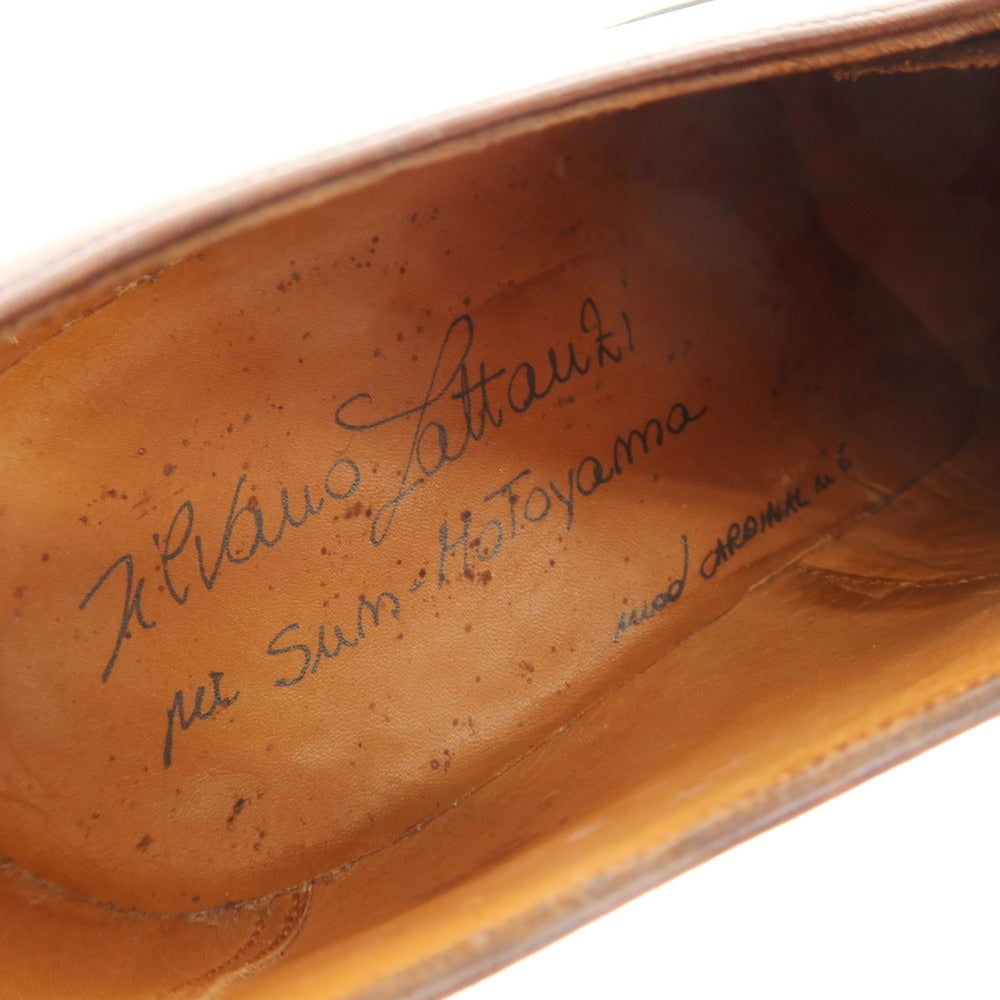 Silvano Lattanzi
per Sum-Motoyama
mod CARDINAL n 6